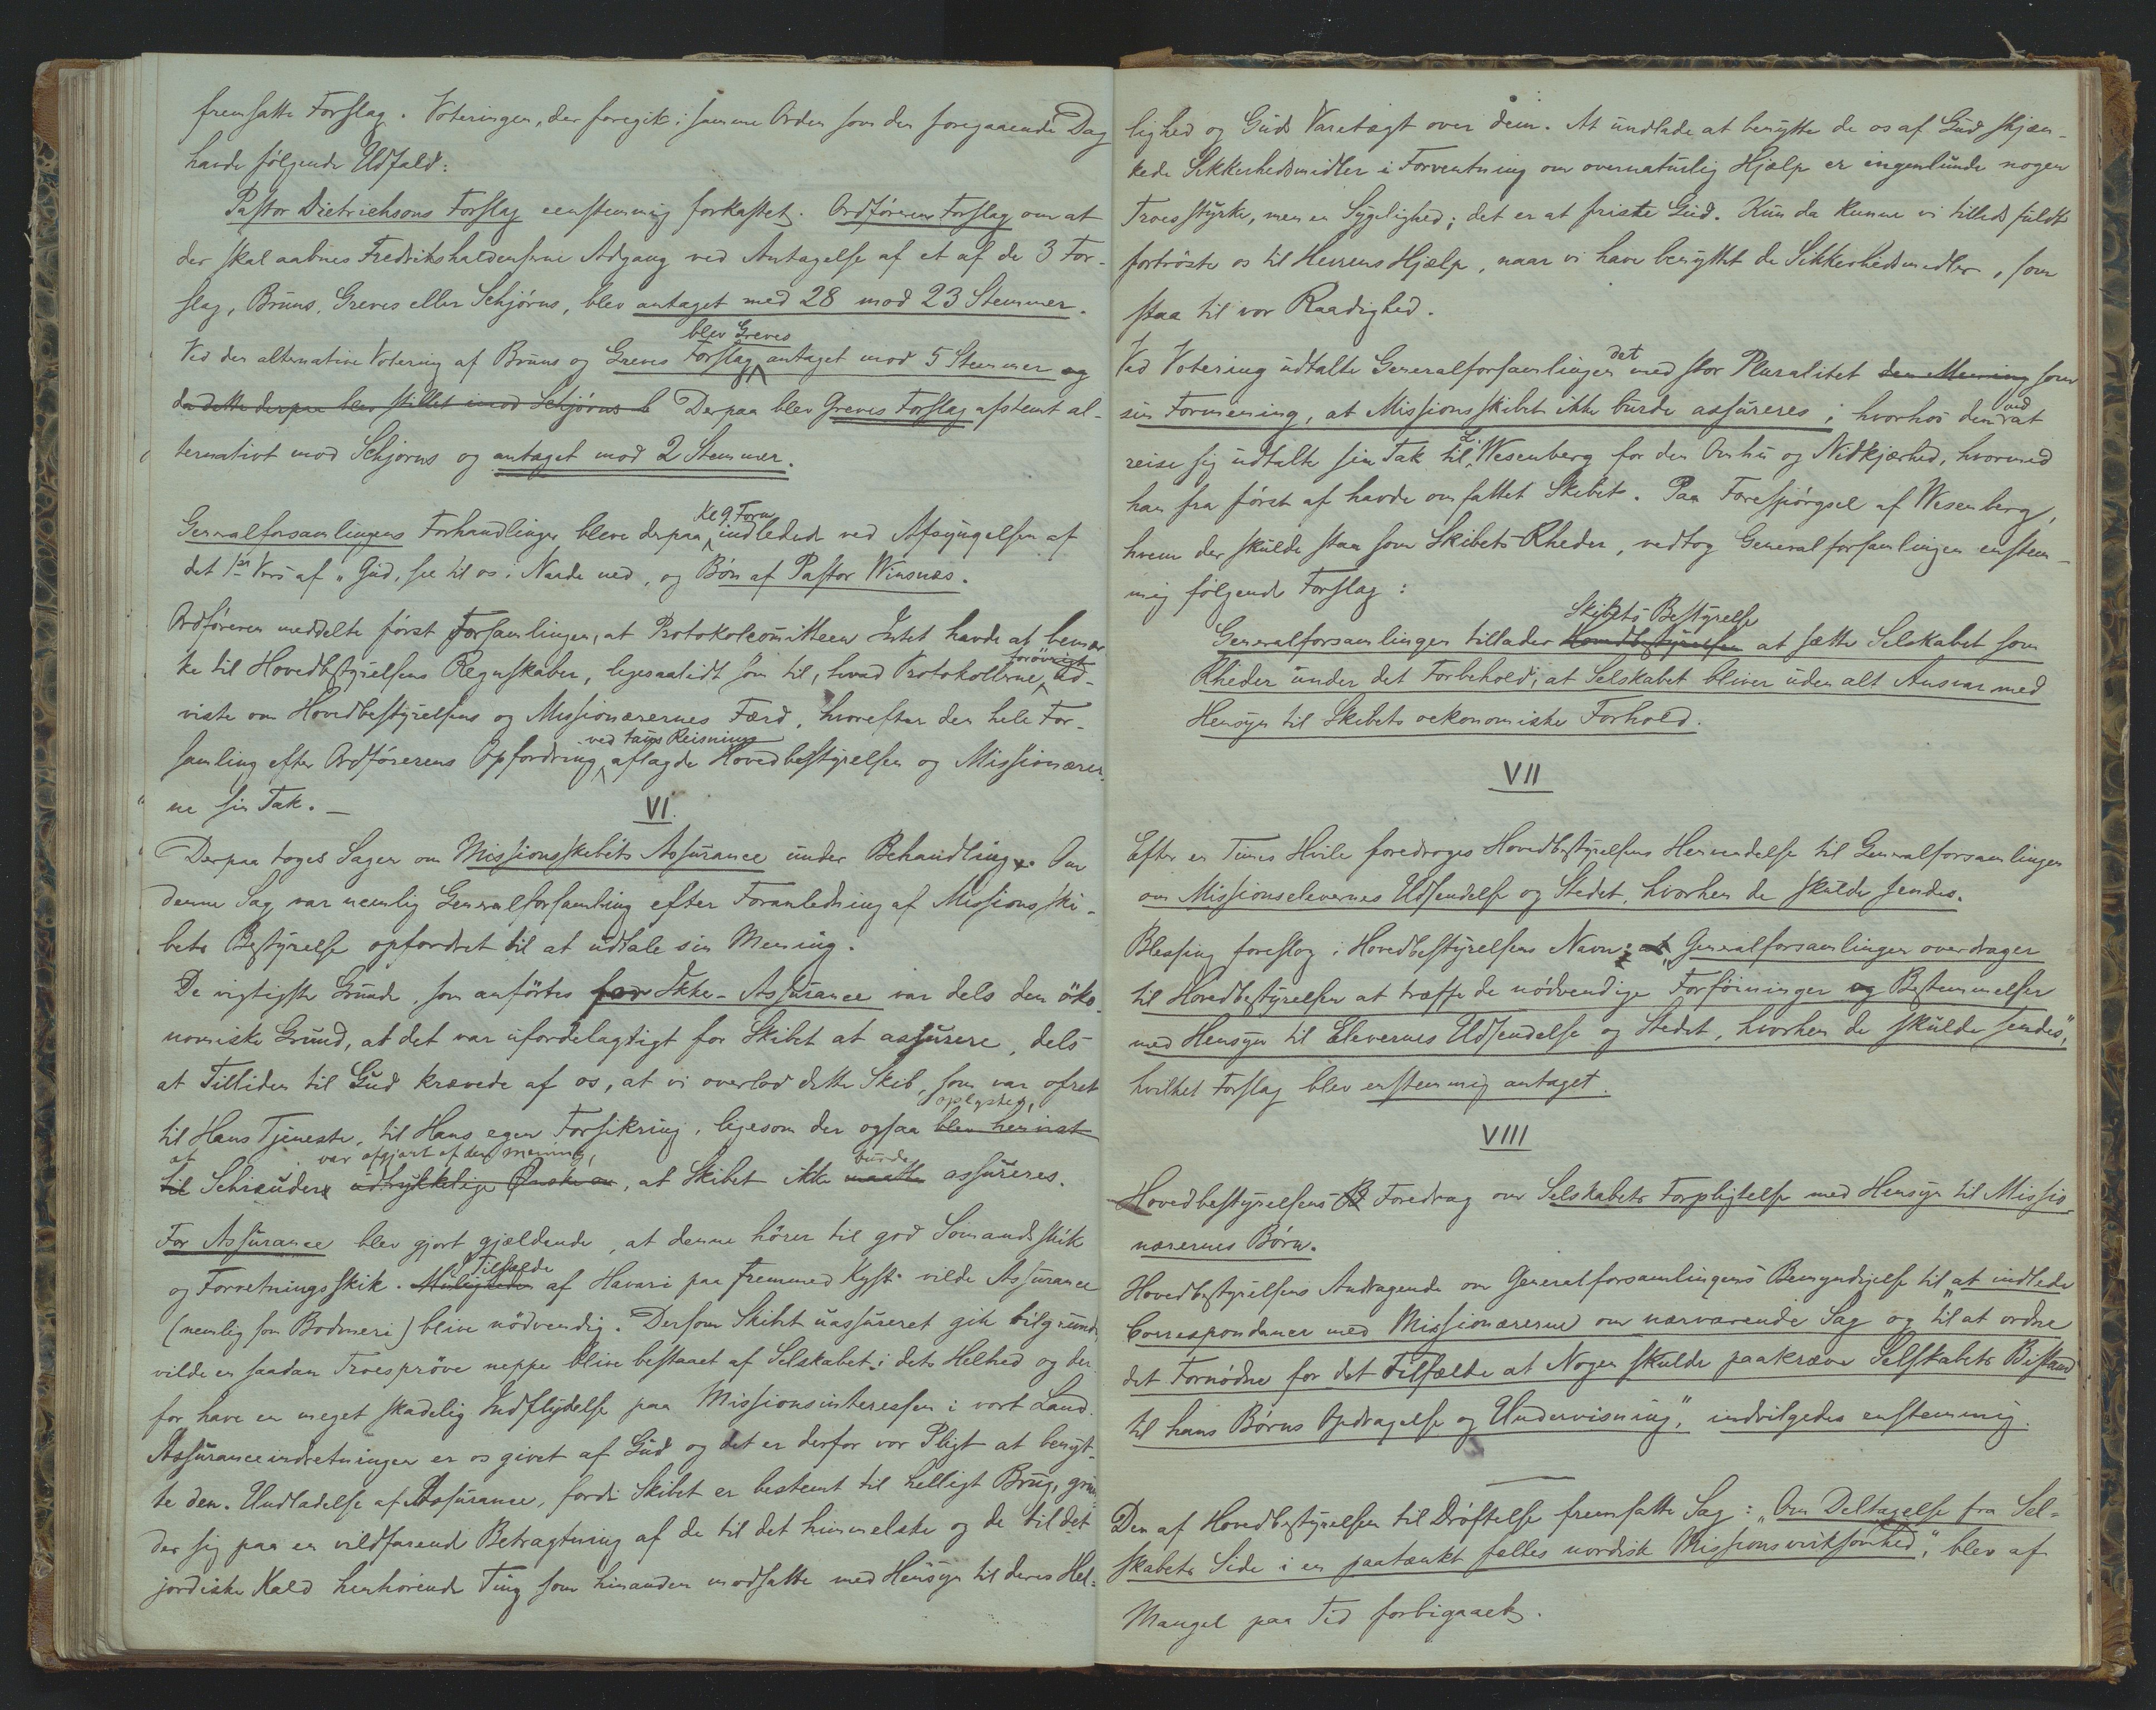 fremsatte Forslag. Voteringen, der foregik i samme Orden som den foregaaende Dag
havde følgende Udfald:
Pastor Dietrichsons Forslag eenstemmig forkastet. Ordførerens Forslag om at
der skal aabnes Fredrikshaldenserne Adgang ved Antagelse af et af de 3 For-
slag, Bruns, Greves eller Schjørns, blev antaget med 28 mod 23 Stemmer.
blev Greves
Ved den alternative Votering af Bruns og Greves Forslag antaget mod 5 Stemmer og
da dette derpaa blev stillet imod Schjørns b Derpaa blev Greves Forslag afstemt al-
ternativt mod Schjørns og antaget mod 2 Stemmer.
Kl 9 Form
Generalforsamlingens Forhandlinger bleve derpaa indledede ved Afsyngelsen af
det 1ste Vers af "Gud, see til os i Naade ned, og Bøn af Pastor Winsnes.
Ordføreren meddelte først Forsamlingen, at Protokolcomitteen Intet havde at bemær
forövrigt
ke til Hovedbestyrelsens Regnskaber, ligesaalidt som til, hvad Protokollerne ud-
viste om Hovedbestyrelsens og Missionærernes Færd, hvorefter den hele For-
ved taus Reisning
samling efter Ordførerens Opfordring aflagde Hovedbestyrelsen og Missionærer-
ne sin Tak. —
VI.
Derpaa toges Sagen om Missionsskibets Assurance under Behandling. Om
denne Sag var nemlig Generalforsamling efter Foranledning af Missionsski-
bets Bestyrelse opfordret til at udtale sin Mening.
De vigtigste Grunde, som anførtes for Ikke-Assurance var dels den öko-
nomiske Grund, at det var ufordelagtigt for Skibet at assurere, dels
at Tilliden til Gud krævede af os, at vi overlod dette Skib, som var ofret
oplystes,
til Hans Tjeneste, til Hans egen Forsikring, ligesom der ogsaa blev henvist
at var afgjort af den mening, burde
til Schreuders udtrykkelige Ønske om, at Skibet ikke maatte assureres.
For Assurance blev gjort gjældende, at denne hörer til god Sömandsskik
Tilfælde
og Forretningsskik. Muligheden af Havari paa fremmed Kyst vilde Assurance
(nemlig som Bodmeri) blive nödvendig. Dersom Skibet uassureret gik tilgrunde,
vilde en saadan Troespröve neppe blive bestaaet af Selskabet i dets Helhed og der-
for have en meget skadelig Indflydelse paa Missionsinteressen i vort Land.
Assuranceindretningen er os givet af Gud og det er derfor vor Pligt at benyt-
te den. Undladelse af Assurance, fordi Skibet er bestemt til helligt Brug, grun-
der sig paa en vildfarende Betragtning af de til det himmelske og de til det
jordiske Kald henhørende Ting som hinanden modsatte med Hensyn til deres Hel-
lighed og Guds Varetægt over dem. At undlade at benytte de os af Gud skjæn-
kede Sikkerhedsmidler i Forventning om overnaturlig Hjælp er ingenlunde nogen
Troesstyrke, men en Sygelighed; det er at friste Gud. Kun da kunne vi tillidsfuldt
fortröste os til Herrens Hjælp, naar vi have benyttet de Sikkerhedsmidler, som
staa til vor Raadighed.
det
Ved Votering udtalte Generalforsamlingen med stor Pluralitet den Mening som
sin Formening, at Missionsskibet ikke burde assureres; hvorhos den ved at
reise sig udtalte sin Tak til L. Wesenberg for den Omhu og Nidkjærhed, hvormed
han fra først af havde omfattet Skibet. Paa Forespörgsel af Wesenberg,
hvem der skulde staa som Skibets Rheder, vedtog Generalforsamlingen enstem-
mig følgende Forslag:
Skibets Bestyrelse
Generalforsamlingen tillader Hovedbestyrelsen at sætte Selskabet som
Rheder under det Forbehold, at Selskabet bliver uden alt Ansvar med
Hensyn til Skibets oekonomiske Forhold.
VII
Efter en Times Hvile foredroges Hovedbestyrelsens Henvendelse til Generalforsamlingen
om Missionselevernes Udsendelse og Stedet, hvorhen de skulde sendes.
Blessing foreslog i Hovedbestyrelsens Navn: at "Generalforsamlingen overdrager
til Hovedbestyrelsen at træffe de nödvendige Forföininger og Bestemmelser
med Hensyn til Elevernes Udsendelse og Stedet, hvorhen de skulde sendes",
hvilket Forslag blev enstemmig antaget.
VIII
Hovedbestyrelsens Foredrag om Selskabets Forpligtelse med Hensyn til Missio-
nærernes Børn.
Hovedbestyrelsens Andragende om Generalforsamlingens Bemyndigelse til "at indlede
Correspondance med Missionærerne om nærværende Sag og til at ordne
det Fornödne for det Tilfælde at Nogen skulde paakræve Selskabets Bistand
til hans Børns Opdragelse og Undervisning", indvilgedes enstemmig.
Den af Hovedbestyrelsen til Dröftelse fremsatte Sag: "Om Deltagelse fra Sel-
skabets Side i en paatænkt fælles nordisk Missionsvirksomhed", blev af
Mangel paa Tid forbigaaet.